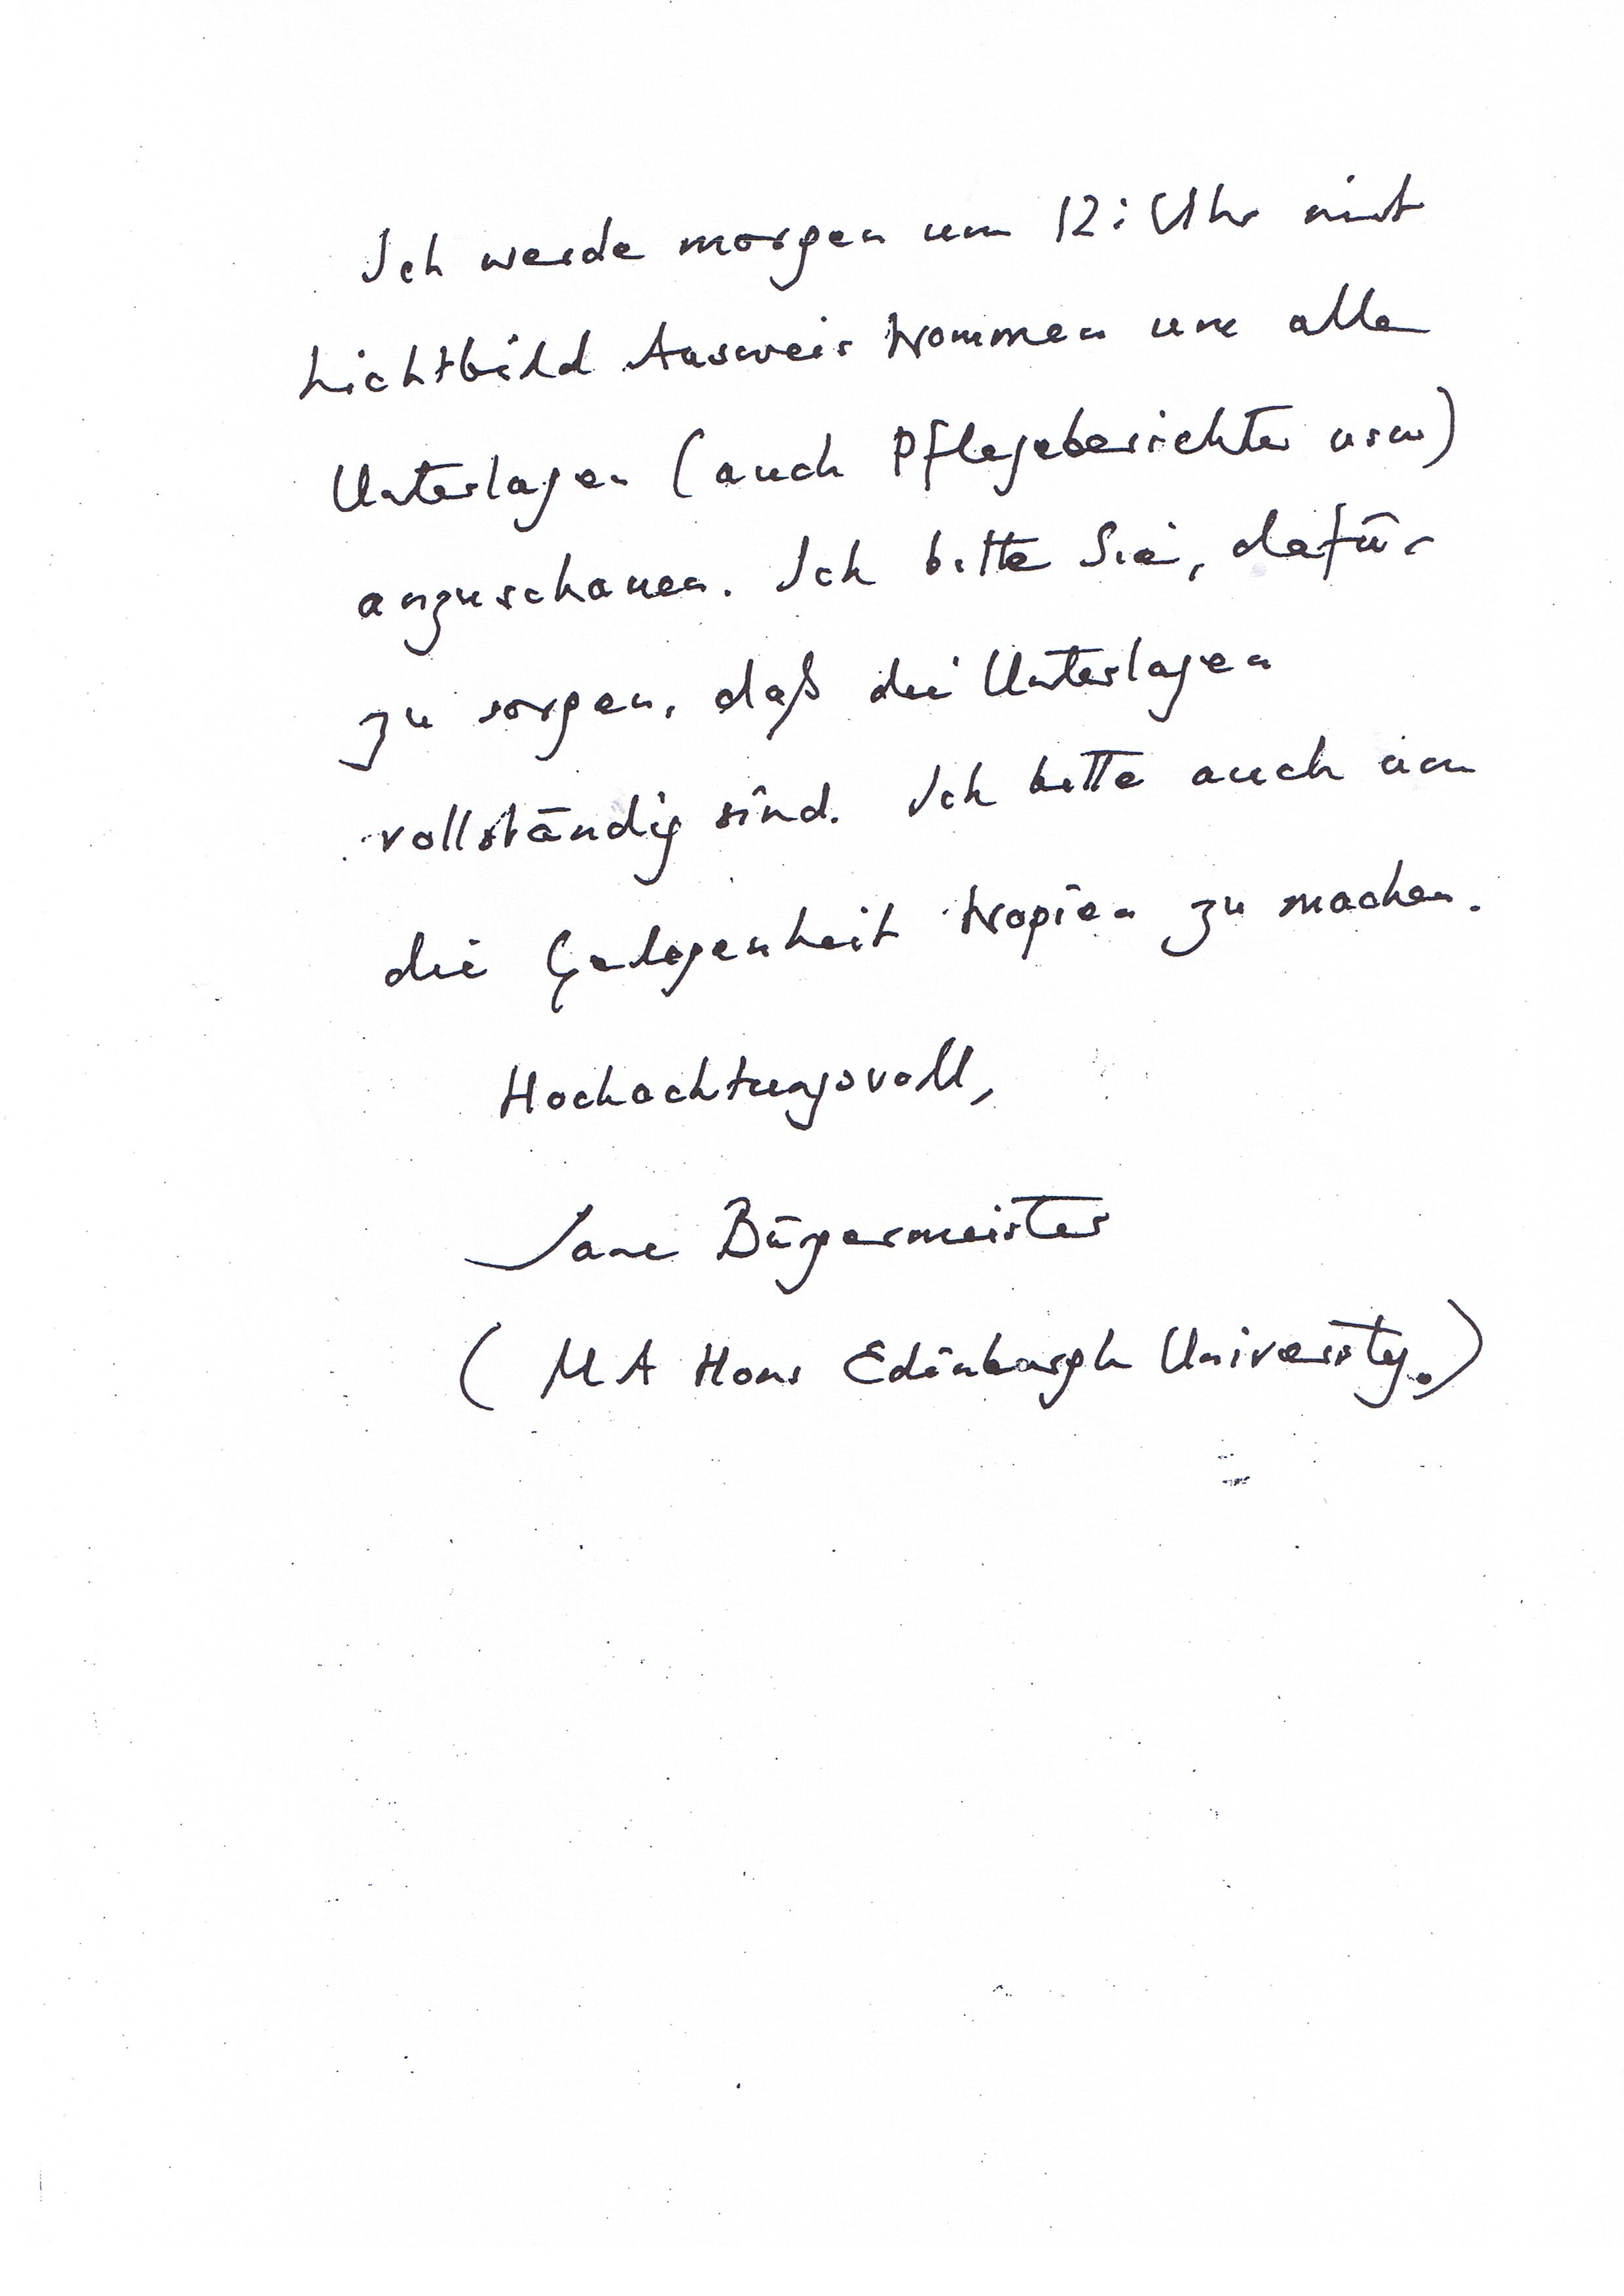 Ich werde morgen um 12: Uhr mit
Lichtbild Ausweis kommen um alle
Unterlagen (auch Pflegeberichte usw)
anzuschauen. Ich bitte Sie, dafür
zu sorgen, daß die Unterlagen
vollständig sind. Ich bitte auch um
die Gelegenheit Kopien zu machen.
Hochachtungsvoll,
Jane Bürgermeister
(MA Hons Edinburgh University.)